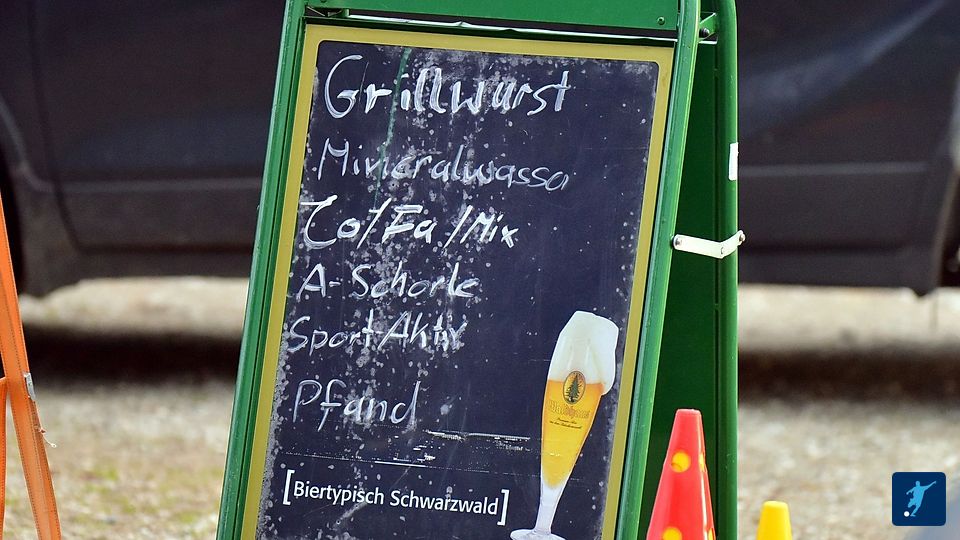 Grillwurst
Mineralwasser
Co/Fa/Mix
A-Schorle
Sport Aktiv
Pfand
[Biertypisch Schwarzwald]